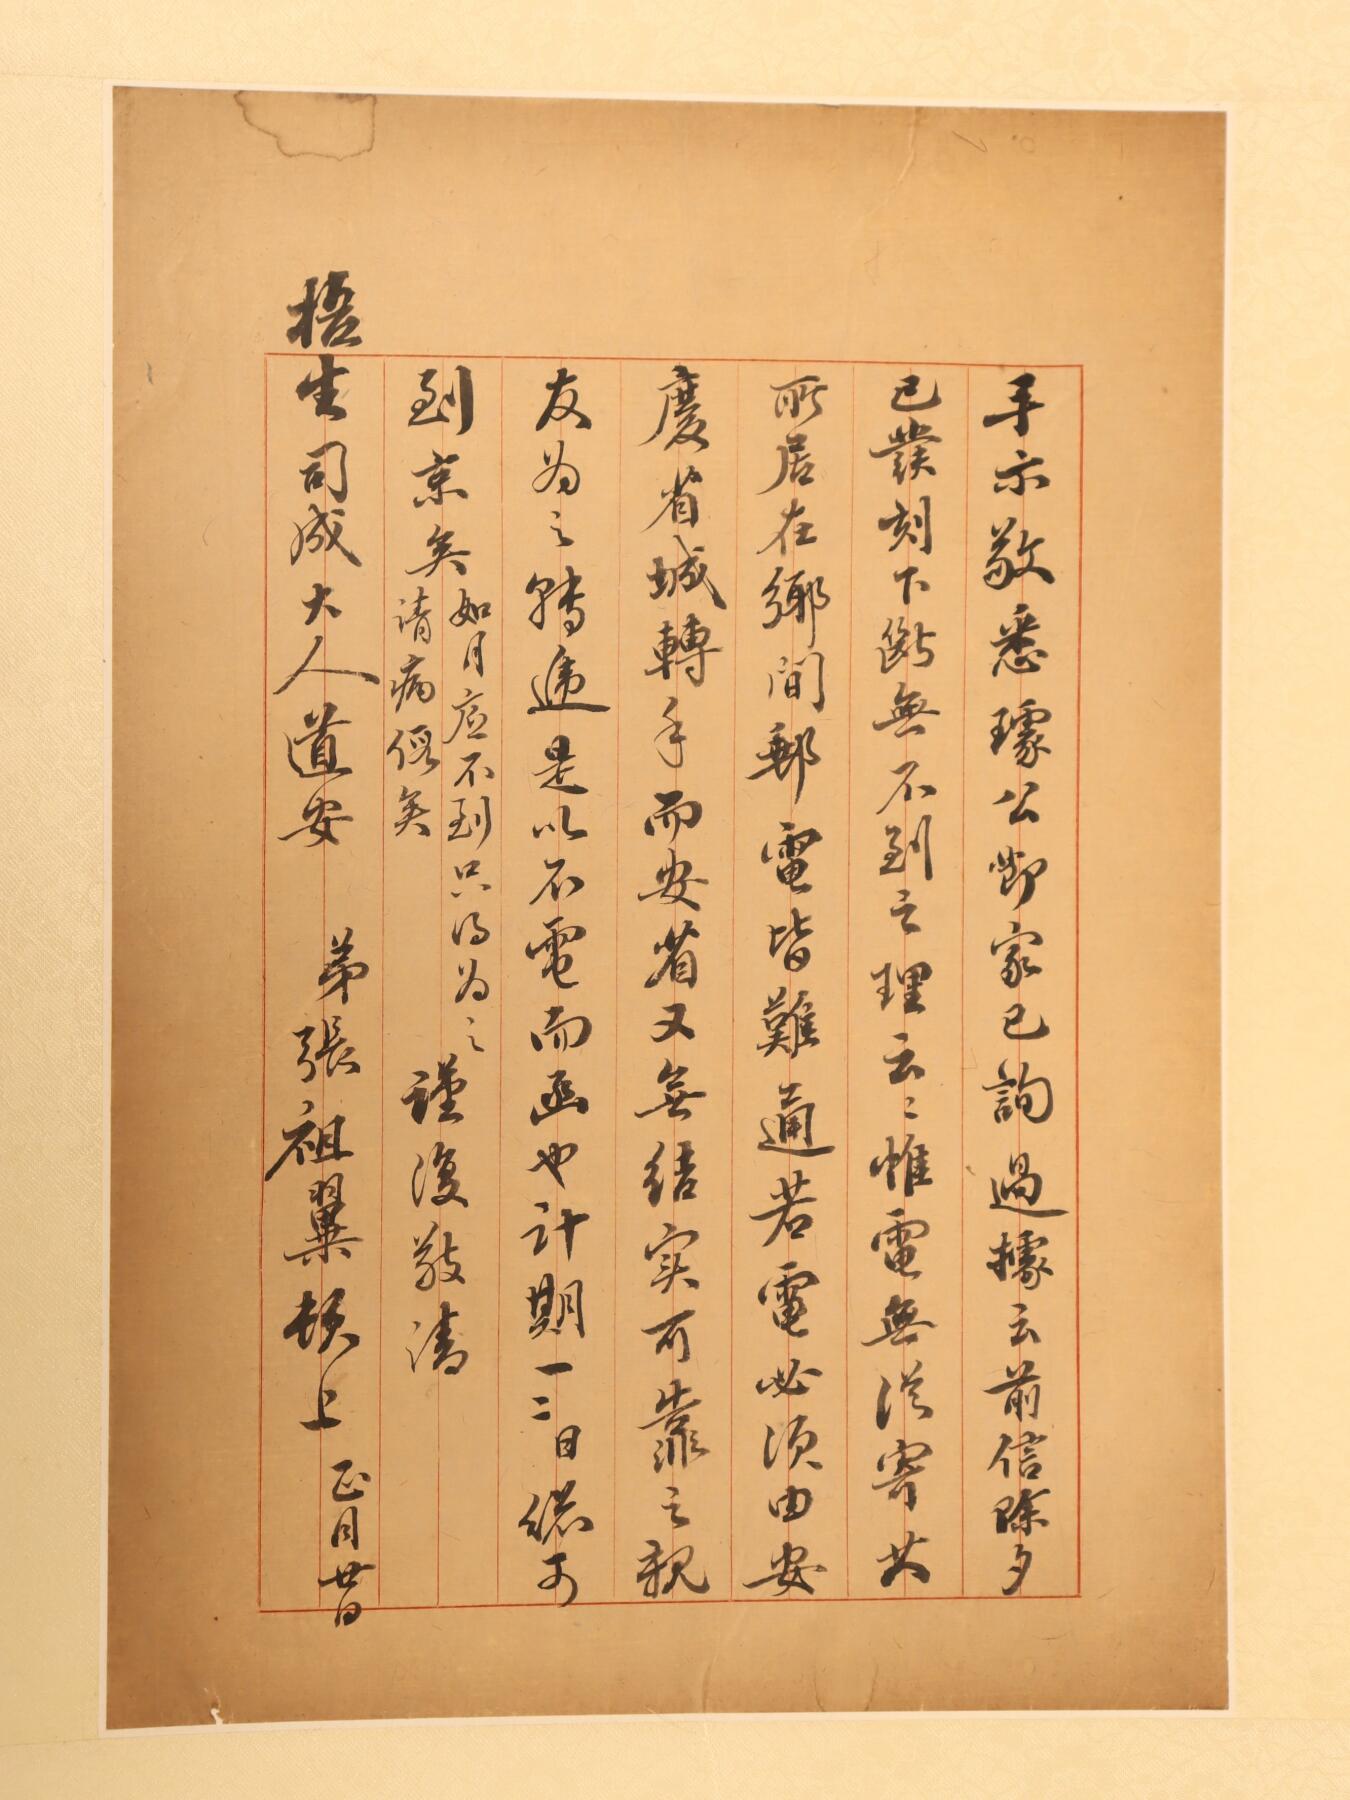 手示敬悉璩公鄰家已詢過據云前信除夕
已發刻下斷無不到之理云云惟電無從寄其
所居在鄉間郵電皆難通若電必須由安
慶省城轉手而安省又無結实可靠之親
友为之轉遞是以不電而函也計期一二日總可
到京矣如月底不到只得为之請病假矣謹復敬請
梧生司成大人道安 弟張祖翼頓上 正月廿日